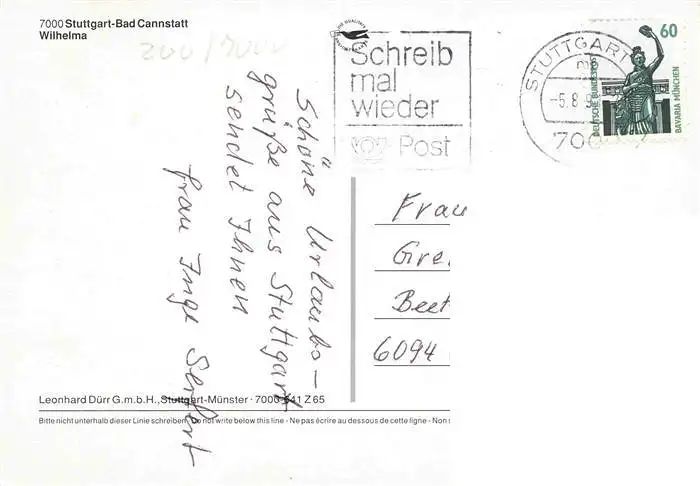 7000 Stuttgart-Bad Cannstatt
Wilhelma
Schreib
mal
wieder
Post
STUTTGART
-5.8.9
700
60
DEUTSCHE BUNDESPOST
BAVARIA MÜNCHEN
Schöne Urlaubs-
grüße aus Stuttgart
sendet Ihnen
Frau Inge Seifert
Frau
Gre
Beet
6094
Leonhard Dürr G.m.b.H., Stuttgart-Münster · 7000 641 Z 65
Bitte nicht unterhalb dieser Linie schreiben. Do not write below this line - Ne pas écrire au dessous de cette ligne - Non s